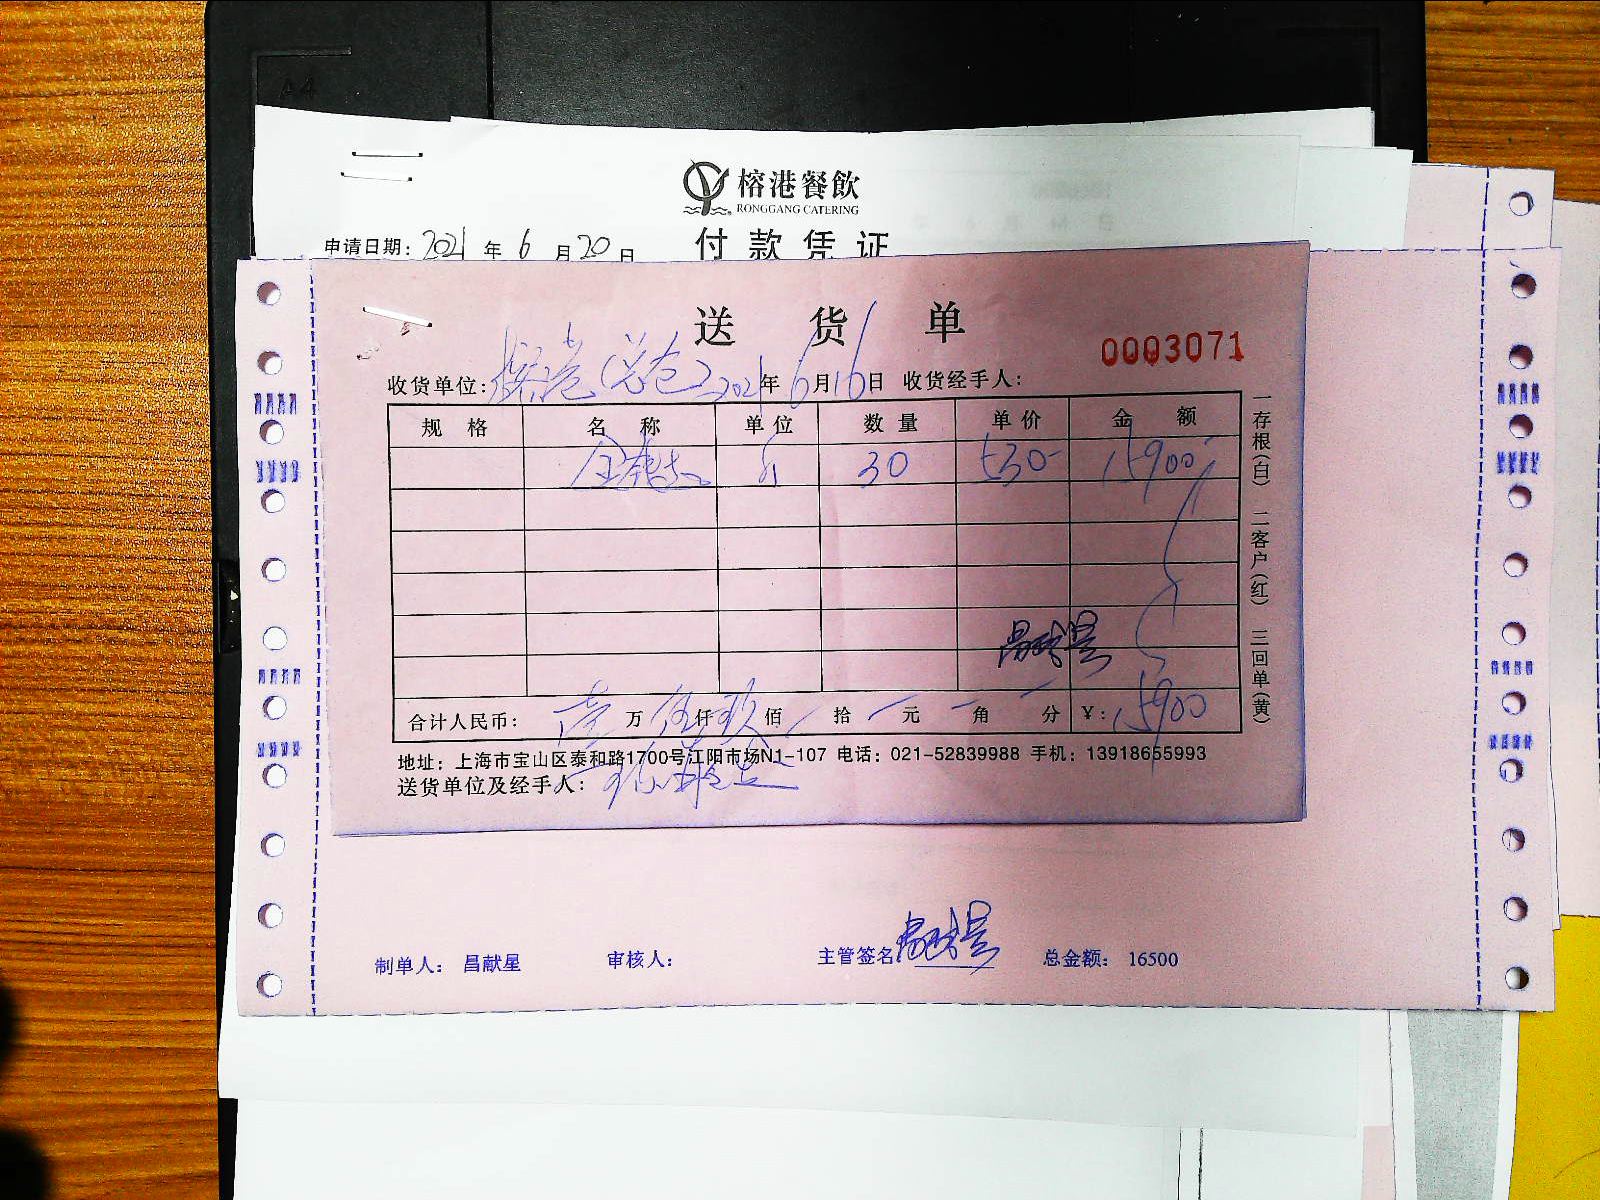 A4
榕港餐飲
RONGGANG CATERING
申请日期：2021年6月20日
付款凭证
送货单
0003071
收货单位：榕港（总仓）2021年6月16日 收货经手人：
规格 名称 单位 数量 单价 金额
30 530- 15900
合计人民币：壹万伍仟玖佰 拾 元 角 分 ¥：15900
地址：上海市宝山区泰和路1700号江阳市场N1-107 电话：021-52839988 手机：13918655993
送货单位及经手人：
一存根（白） 二客户（红） 三回单（黄）
制单人： 昌献星 审核人： 主管签名 昌献星 总金额： 16500